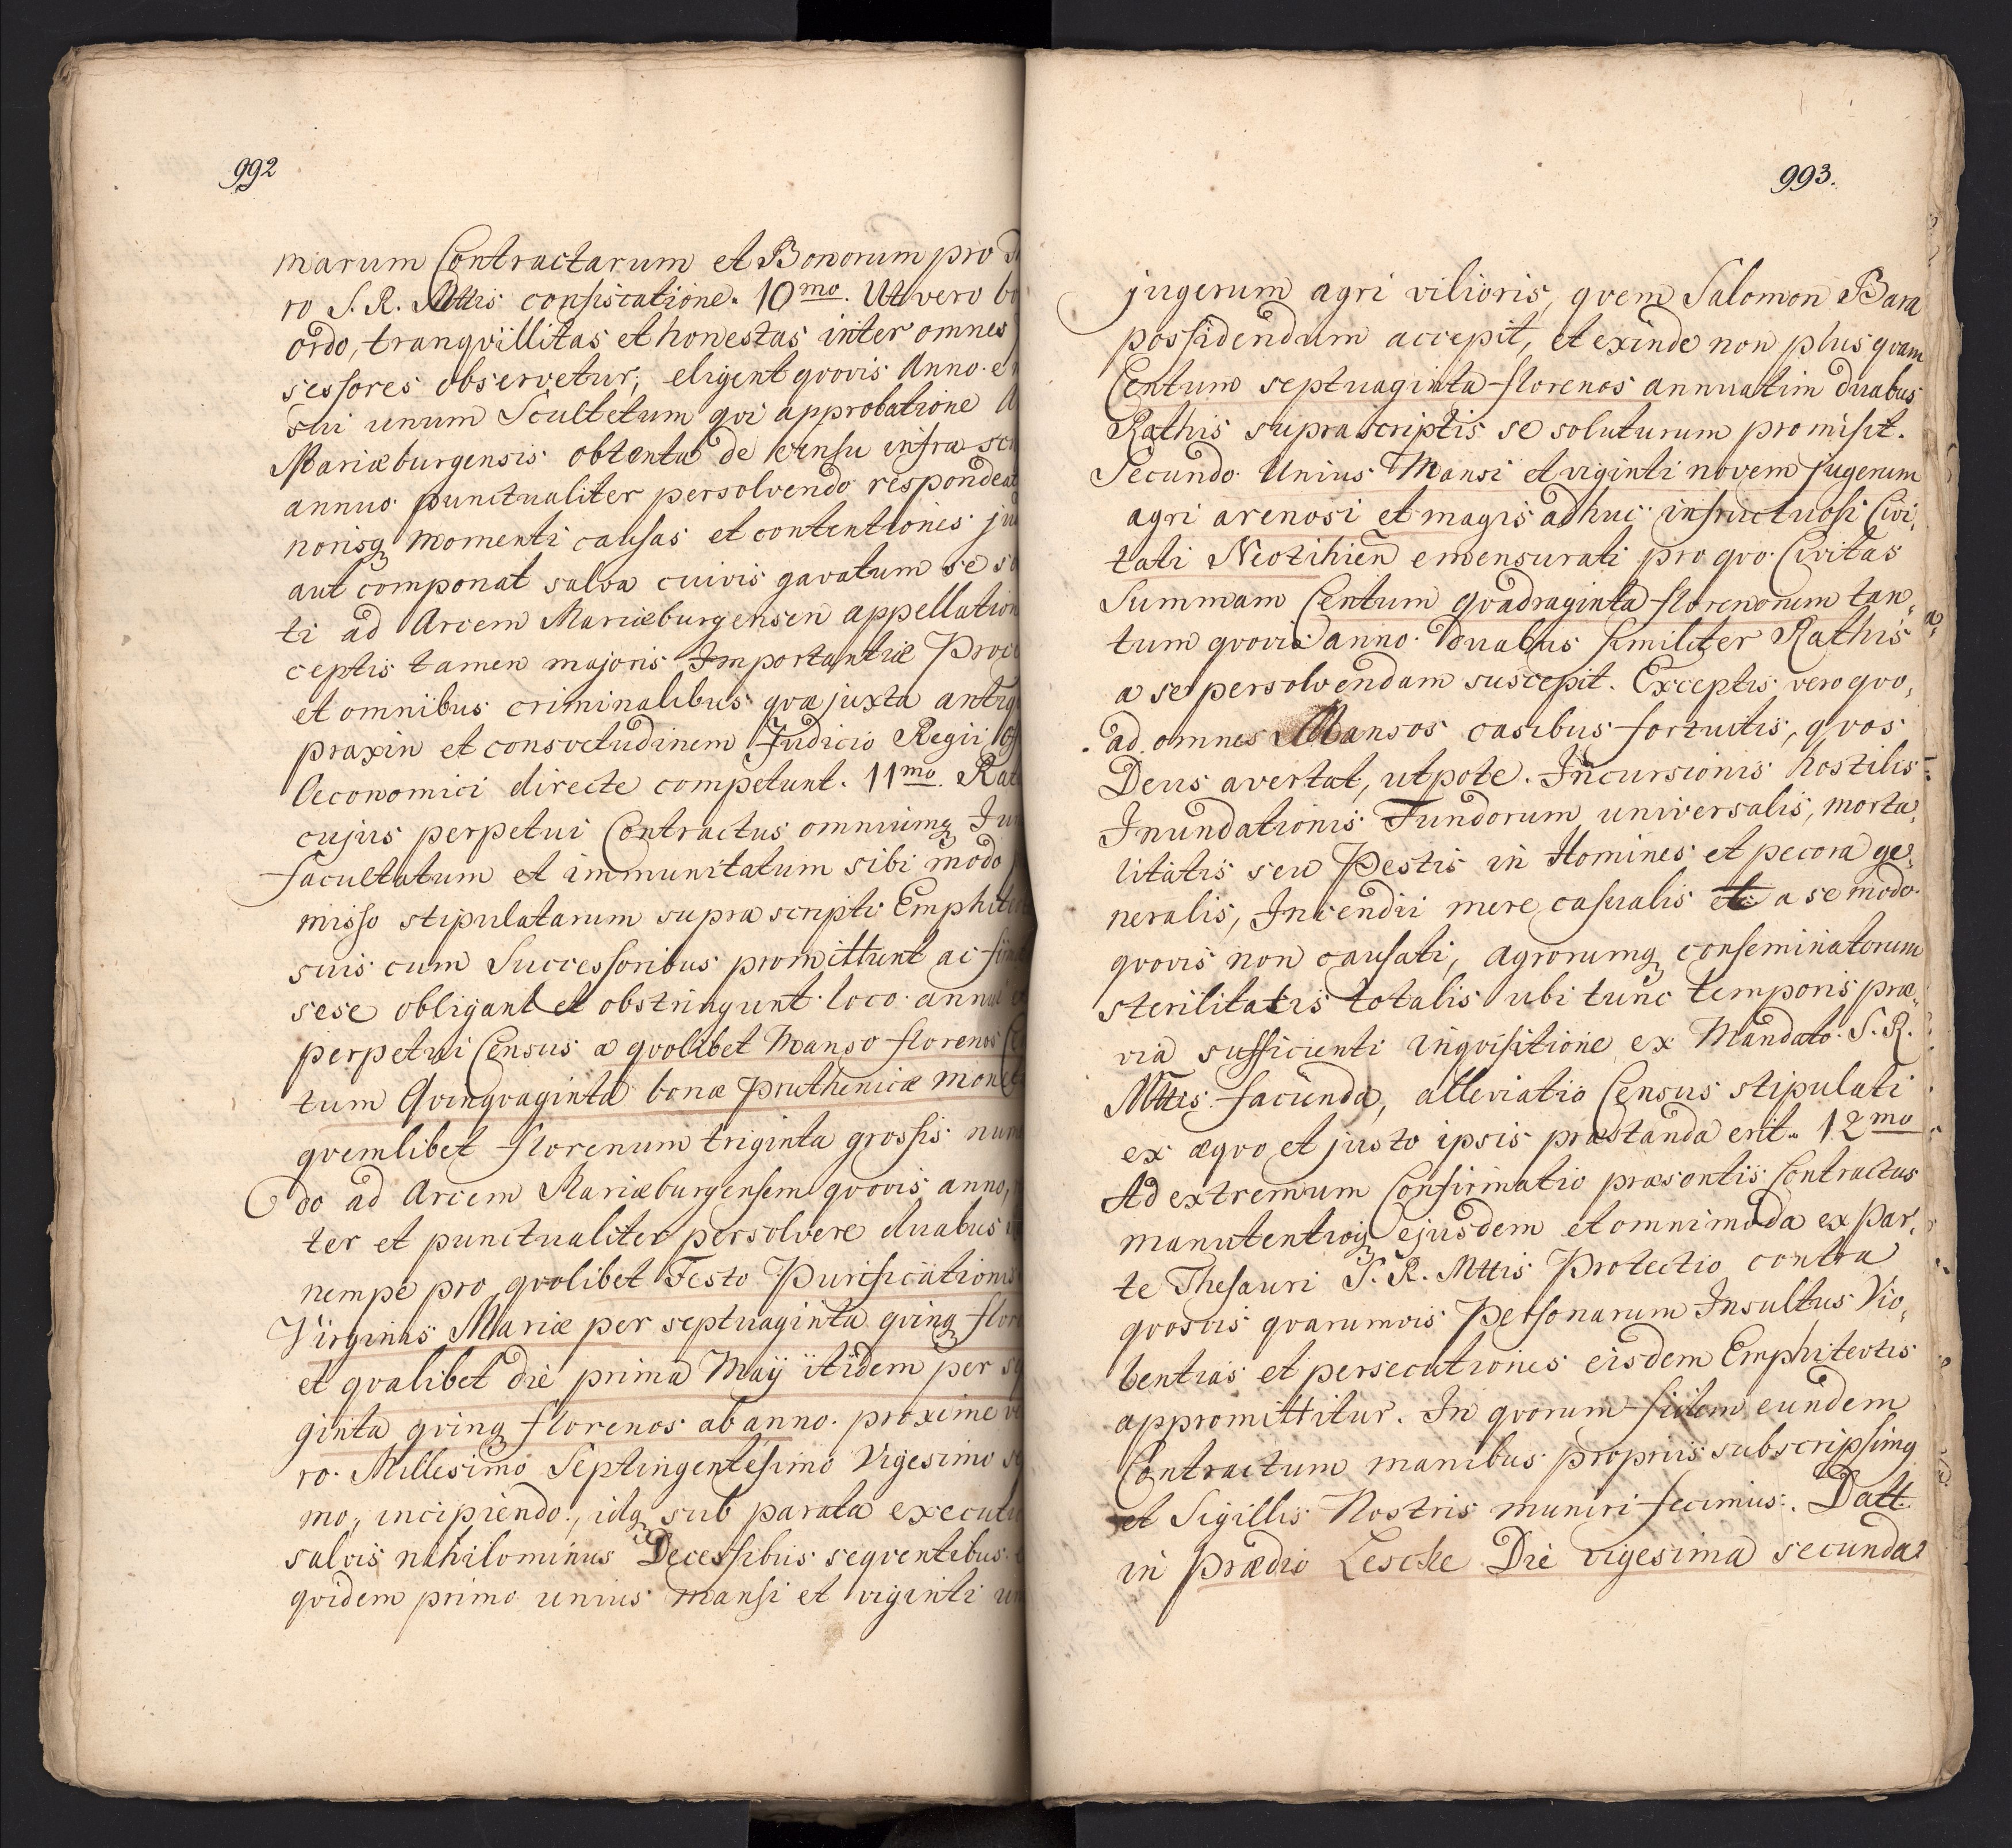 992
marum Contractarum et Bonorum pro
ro S. R. Mttis confiscatione. 10mo. Ut vero
ordo, tranqvillitas et honestas inter omnes
sessores observetur, eligent qvovis Anno
sui unum Scultetum qvi approbatione
Mariæburgensis obtenta de censu infra
annuo punctualiter persolvendo respondeat
norisq momenti causas et contentiones
aut componat salva cuivis gavatum se
ti ad Arcem Mariæburgensen appellation
ceptis tamen majoris Importantiæ
et omnibus criminalibus qvæ juxta
praxin et consvetudinem Judicio Regii
Oeconomici directe competunt. 11mo.
cujus perpetui Contractus omniumq
facultatum et immunitatum sibi modo
misso stipulatarum supra scripti
suis cum Successoribus promittunt ac
sese obligant et obstringunt loco annui
perpetui Census a qvolibet Manso florenos
tum Qvinqvaginta bonæ Pruthenicæ
qvemlibet florenum triginta grossis
do ad Arcem Mariæburgensem qvovis anno,
ter et punctualiter persolvere duabus
nempe pro qvolibet Festo Purificationis
Virginis Mariæ per septuaginta qvinq
et qvalibet die prima Maÿ itidem per
ginta qvinq florenos ab anno proxime
ro Millesimo Septingentesimo Vigesimo
mo, incipiendo, idq sub parata
salvis nihilominus Decessibus seqventibus
qvidem primo unius Mansi et viginti
993.
jugerum agri vilioris, qvem Salomon Bara
possidendum accepit, et exinde non plus qvam
Centum septuaginta florenos annuatim duabus
Rathis supra scriptis se soluturum promisit.
Secundo Unius Mansi et viginti novem jugerum
agri arenosi et magis adhuc infructuosi Civi,
tati Neotihien emensurati pro qvo Civitas
Summam Centum qvadraginta florenorum tan,
tum qvovis anno duabus similiter Rathis
a se persolvendam suscepit. Exceptis vero qvo,
ad omnes Mansos casibus fortuitis, qvos
Deus avertat, utpote. Incursionis hostilis
Inundationis Fundorum universalis, morta,
litatis seu Pestis in Homines et pecora ge,
neralis, Incendii mere casualis et a se modo
qvovis non causati, agrorumq conseminatorum
sterilitatis totalis ubi tunc temporis præ,
via sufficienti inqvisitione ex Mandato S. R.
Mttis facienda, alleviatio Census stipulati
ex æqvo et justo ipsis præstanda erit. 12mo
Ad extremum Confirmatio præsentis Contractus
manutentioq ejusdem et omnimoda ex par,
te Thesauri S. R. Mttis Protectio contra
qvosvis qvarumvis Personarum Insultus Vio,
lentias et persecutiones eisdem Emphiteotis
appromittitur. In qvorum fidem eundem
Contractum manibus propriis subscripsimq
et Sigillis Nostris muniri fecimus. Datt.
in Prædio Leschke Die vigesima secunda